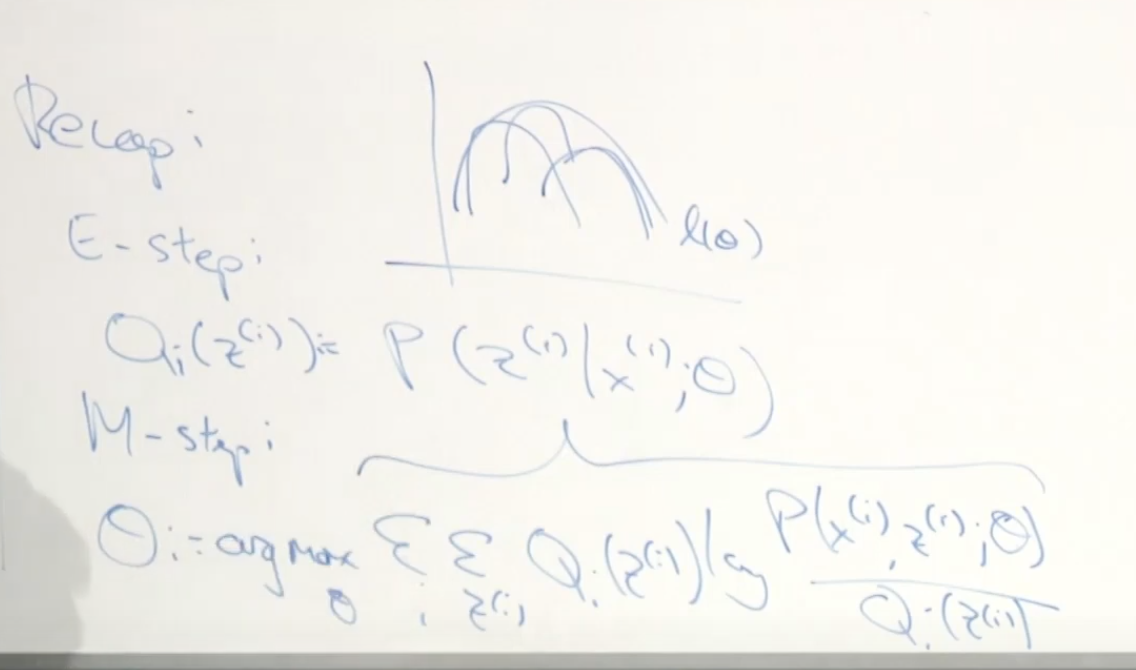 Recap:
l(θ)
E-step:
Q_i(z^(i)) := P(z^(i) | x^(i); θ)
M-step:
θ := arg max_θ Σ_i Σ_z^(i) Q_i(z^(i)) log P(x^(i), z^(i); θ) / Q_i(z^(i))